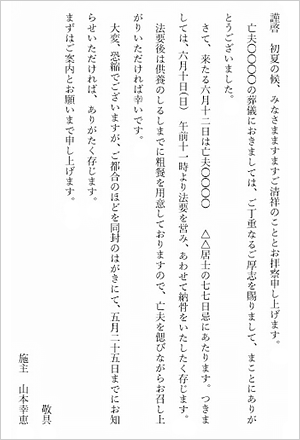 謹啓　初夏の候、みなさまますますご清祥のこととお拝察申し上げます。
亡夫〇〇〇〇の葬儀におきましては、ご丁重なるご厚志を賜りまして、まことにありが
とうございました。
さて、来たる六月十二日は亡夫〇〇〇〇　△△居士の七七日忌にあたります。つきま
しては、六月十日(日)　午前十一時より法要を営み、あわせて納件をいたしたく存じます。
法要後は供養のしるしまでに粗餐を用意しておりますので、亡夫を偲びながらお召し上
がりいただければ幸いです。
大変、恐稲でございますが、ご都合のほどを同封のはがきにて、五月二十五日までにお知
らせいただければ、ありがたく存じます。
まずはご案内とお願いまで申し上げます。
敬具
施主　山本幸恵